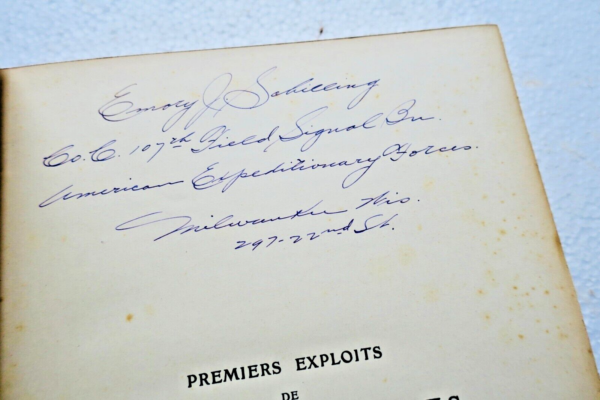 Emory J. Schilling
Co. C. 107th Field Signal Bn.
American Expeditionary Forces.
Milwaukee Wis.
297-22nd St.
PREMIERS EXPLOITS
DE